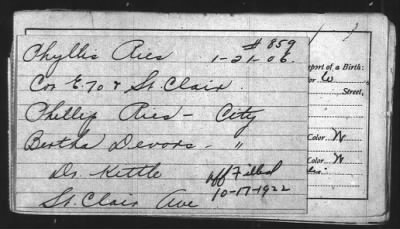 # 859
Phyllis Ries 1-21-06.
Cor E. 70 & St. Clair.
Phillip Ries - City
Bertha Devors - "
Dr. Kettle
aff Filed
St. Clair Ave 10-17-1922
port of a Birth:
or W
Street,
Color W
Color W